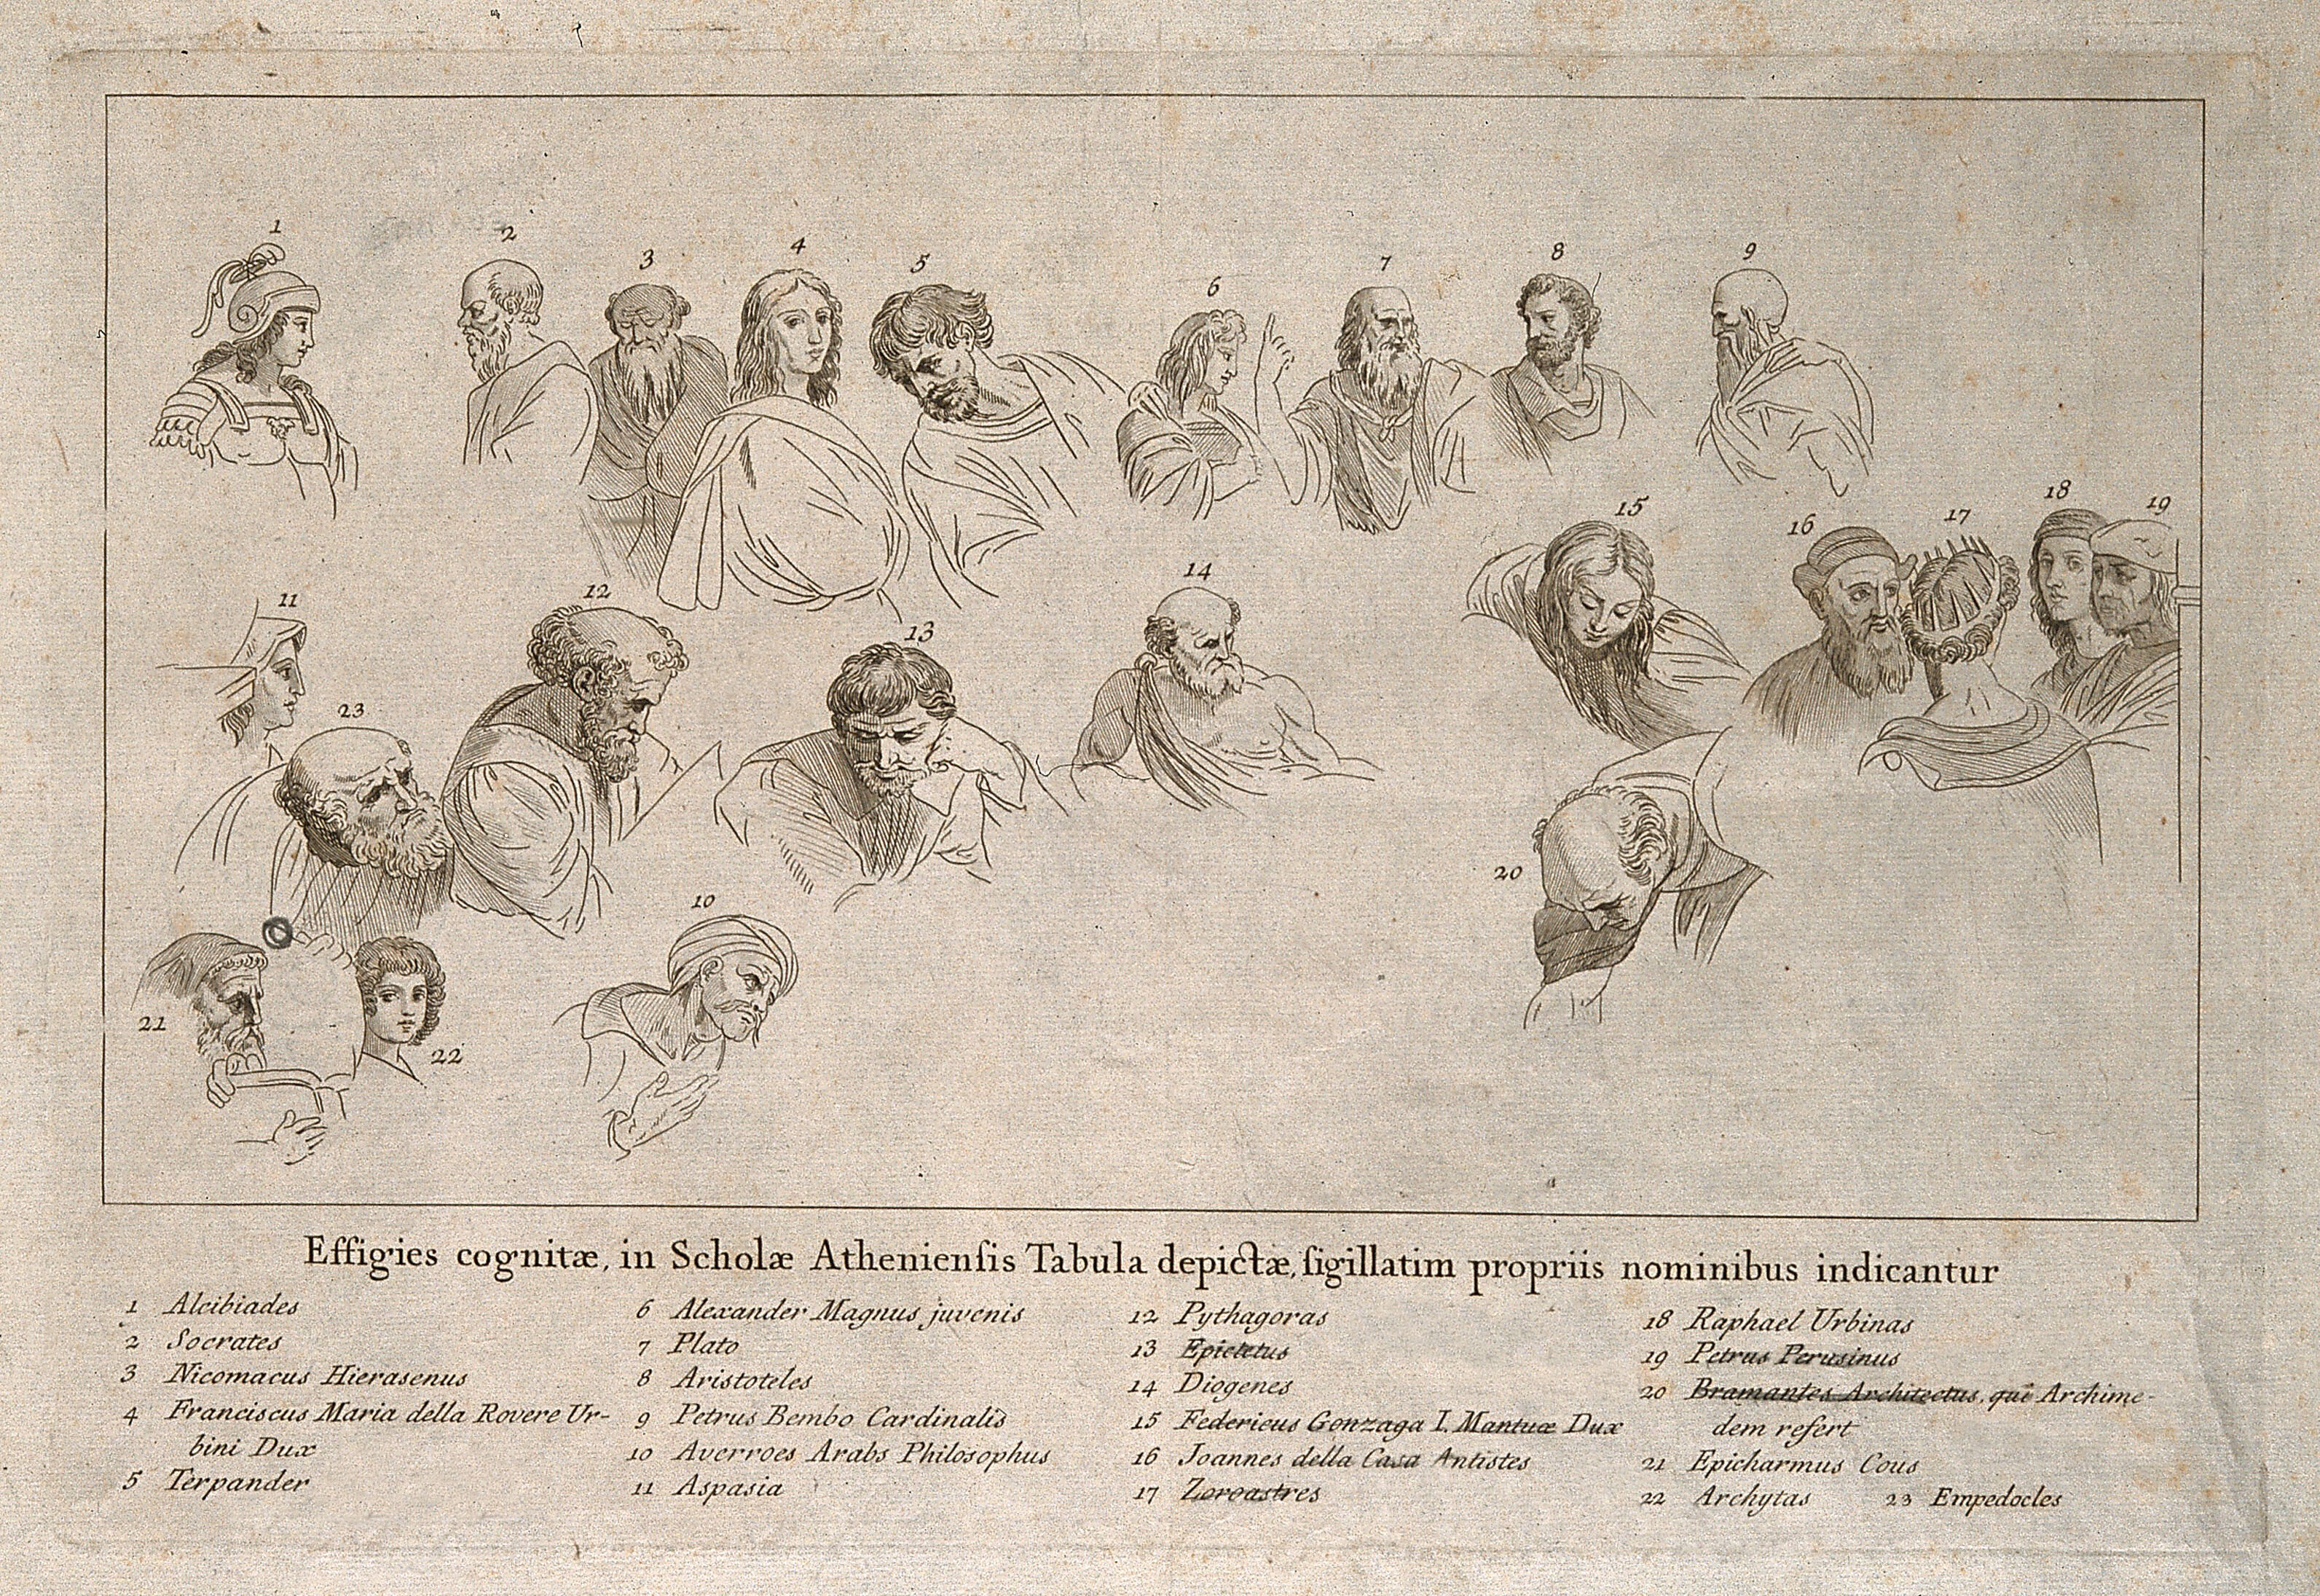 1
2
3
4
5
6
7
8
9
11
12
13
14
15
16
17
18
19
23
10
20
21
22
Effigies cognitæ, in Scholæ Athenienſis Tabula depictæ, ſigillatim propriis nominibus indicantur
1 Alcibiades
2 Socrates
3 Nicomacus Hierasenus
4 Franciscus Maria della Rovere Ur-
bini Dux
5 Terpander
6 Alexander Magnus juvenis
7 Plato
8 Aristoteles
9 Petrus Bembo Cardinalis
10 Averroes Arabs Philosophus
11 Aspasia
12 Pythagoras
13 Epictetus
14 Diogenes
15 Federicus Gonzaga I. Mantuæ Dux
16 Joannes della Casa Antistes
17 Zoroastres
18 Raphael Urbinas
19 Petrus Perusinus
20 Bramantes Architectus, qui Archime-
dem refert
21 Epicharmus Cous
22 Archytas 23 Empedocles